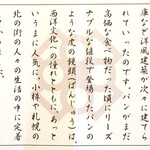 康など洋風建築が次々に建てら
れていたころ、まだパンやケーキが
高価な食べ物だった頃にリーズ
ナブルな値段で登場したパンの
ような皮の饅頭「ぱんじゅう」は、
西洋文化への憧れとともにあっと
いうまに人気に。小樽や札幌の
北の街の人々の生活の中に定着